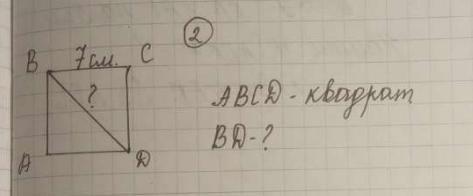 2
B 7 см. C
?
ABCD - квадрат
BD - ?
A D